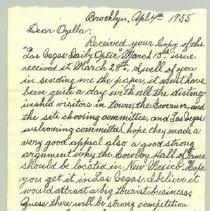 Brooklyn, Apl 9th 1955
Dear Ozella:
Received your Copy of the
"Las Vegas Daily Optic" March 15th issue
received it March 28th. Swell of you
in sending me the paper, it must have
been quite a day with all the distin-
guished visitors in town, the Governor, and
the site choosing committee, and Las Vegas'
welcoming committee hope they made a
very good appeal also a good strong
argument why the Cowboy Hall of Fame
should be located in New Mexico. Hope
you get it in Las Vegas. I believe it
would attract a big tourist business.
Guess there will be strong competition